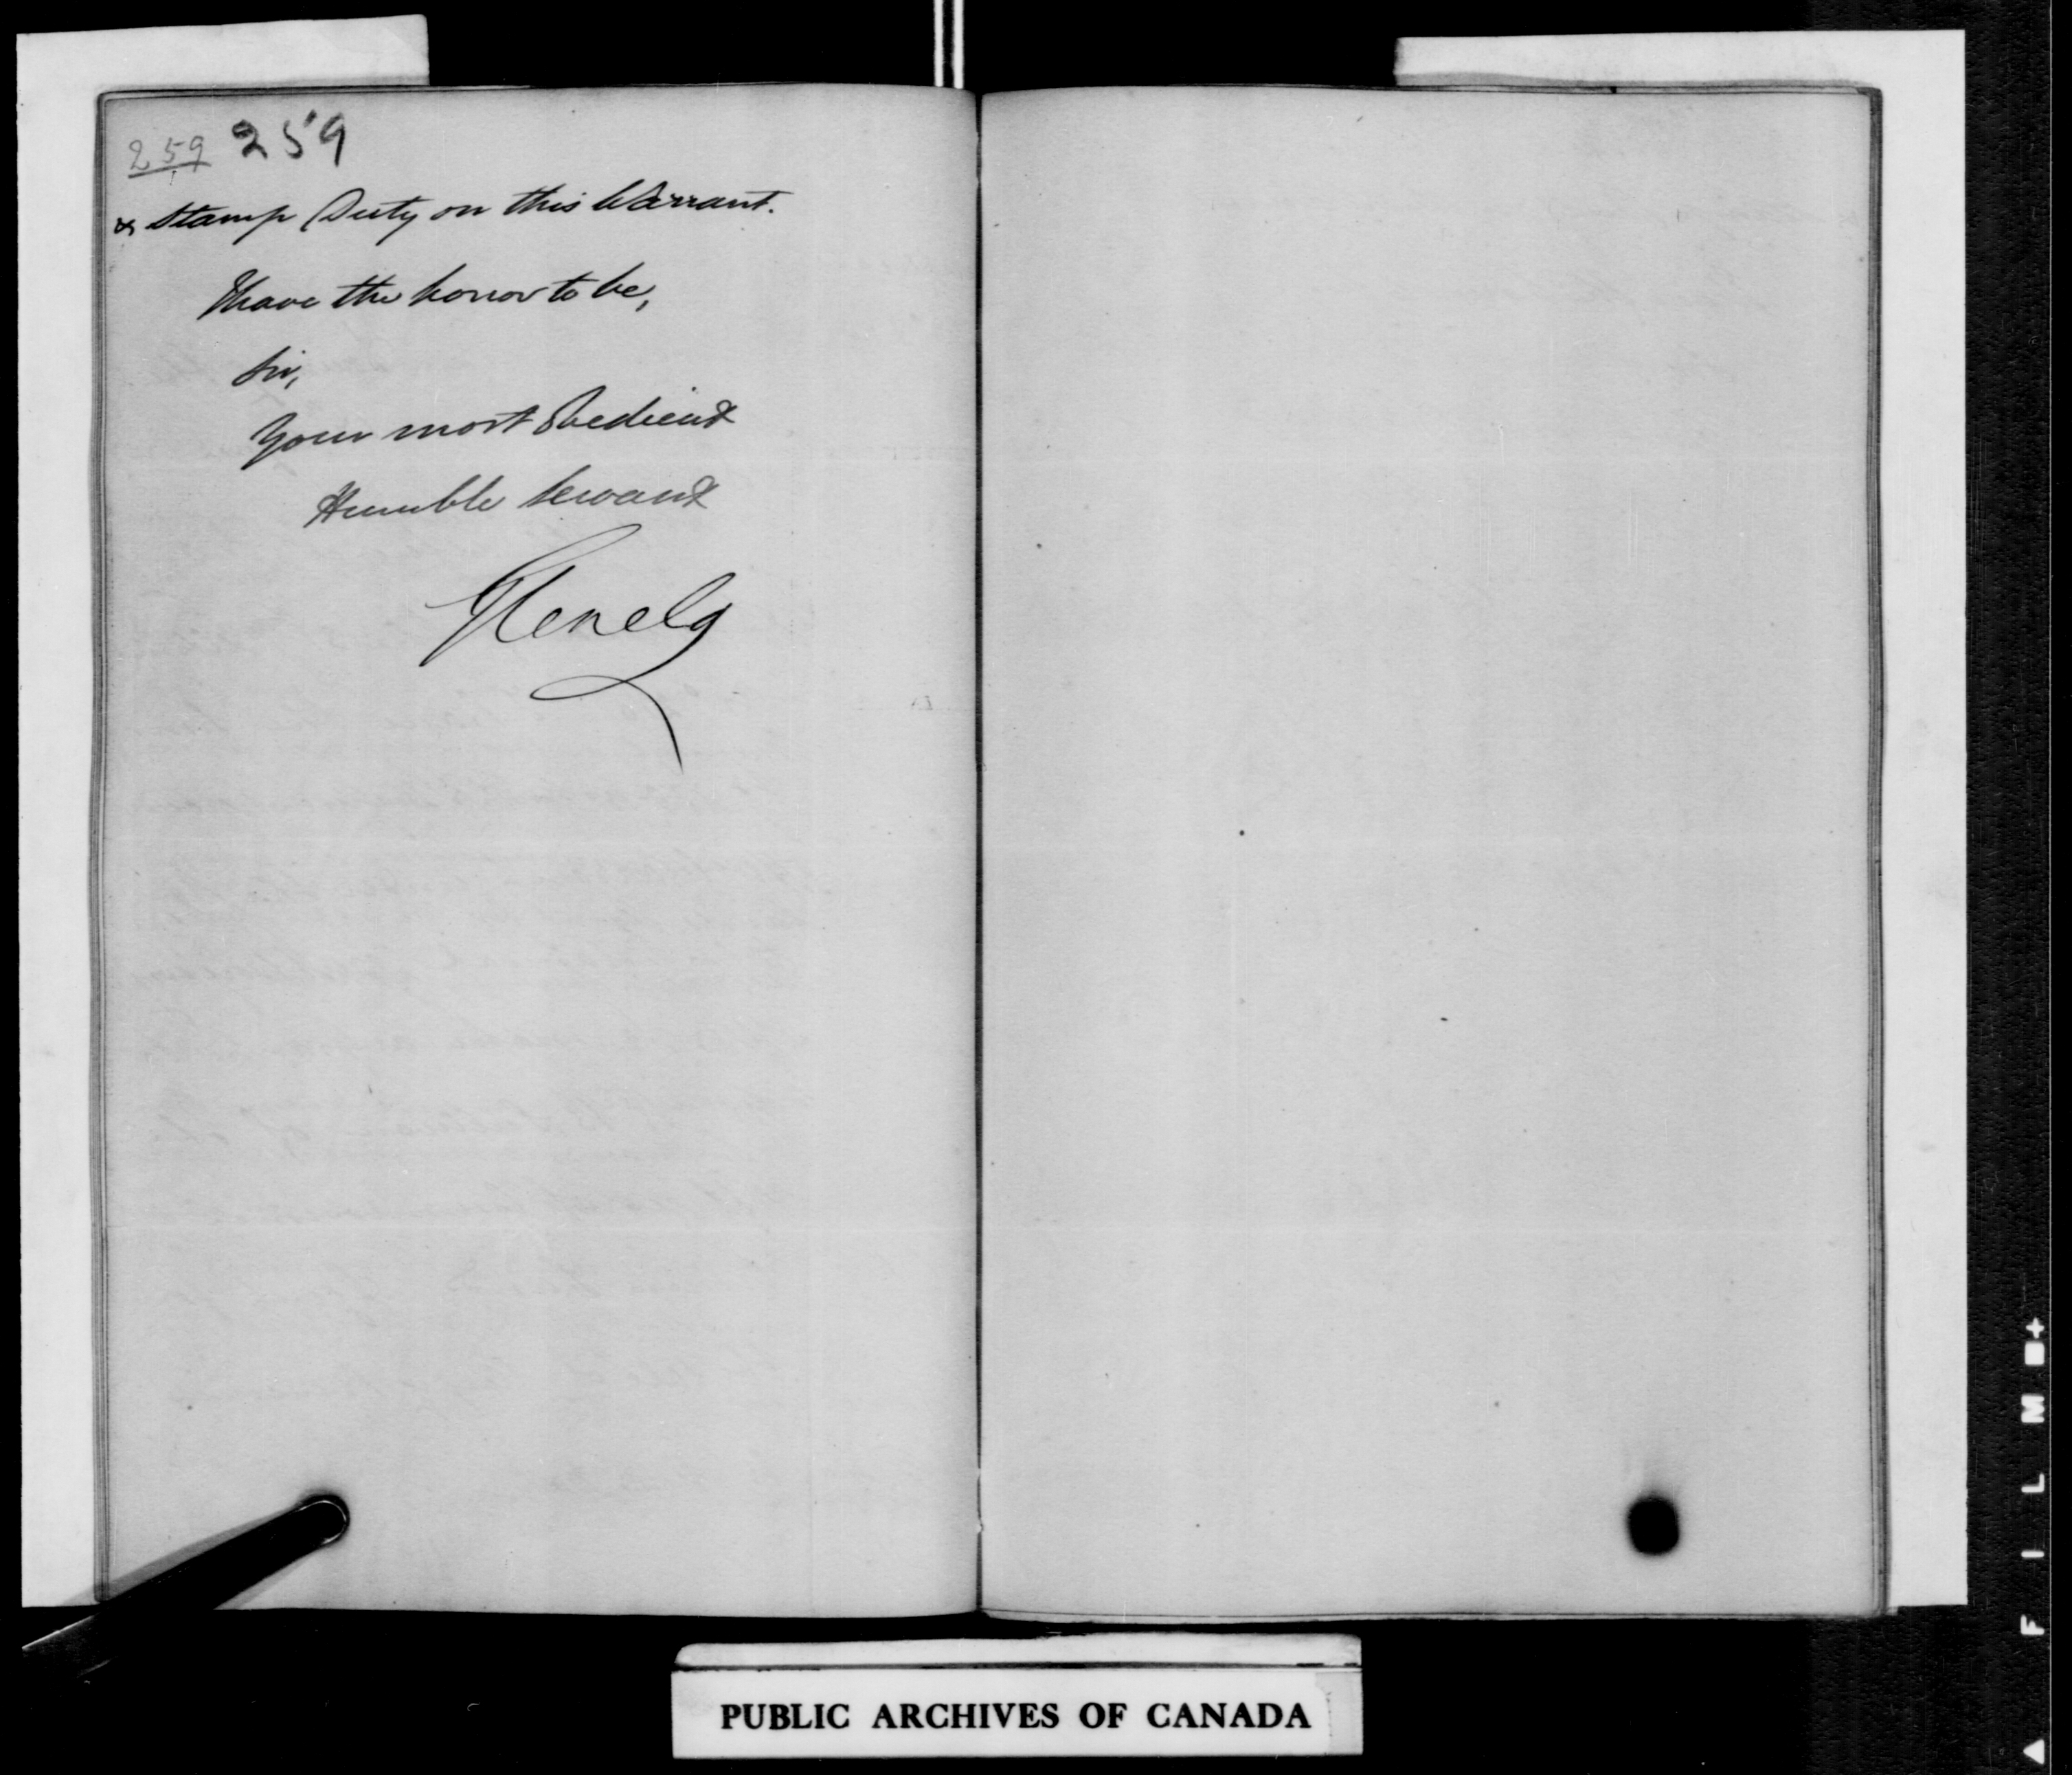 259 259
& Stamp Duty on this Warrant.
I have the honor to be,
Sir,
Your most Obedient
Humble Servant
Glenelg
PUBLIC ARCHIVES OF CANADA
FILM